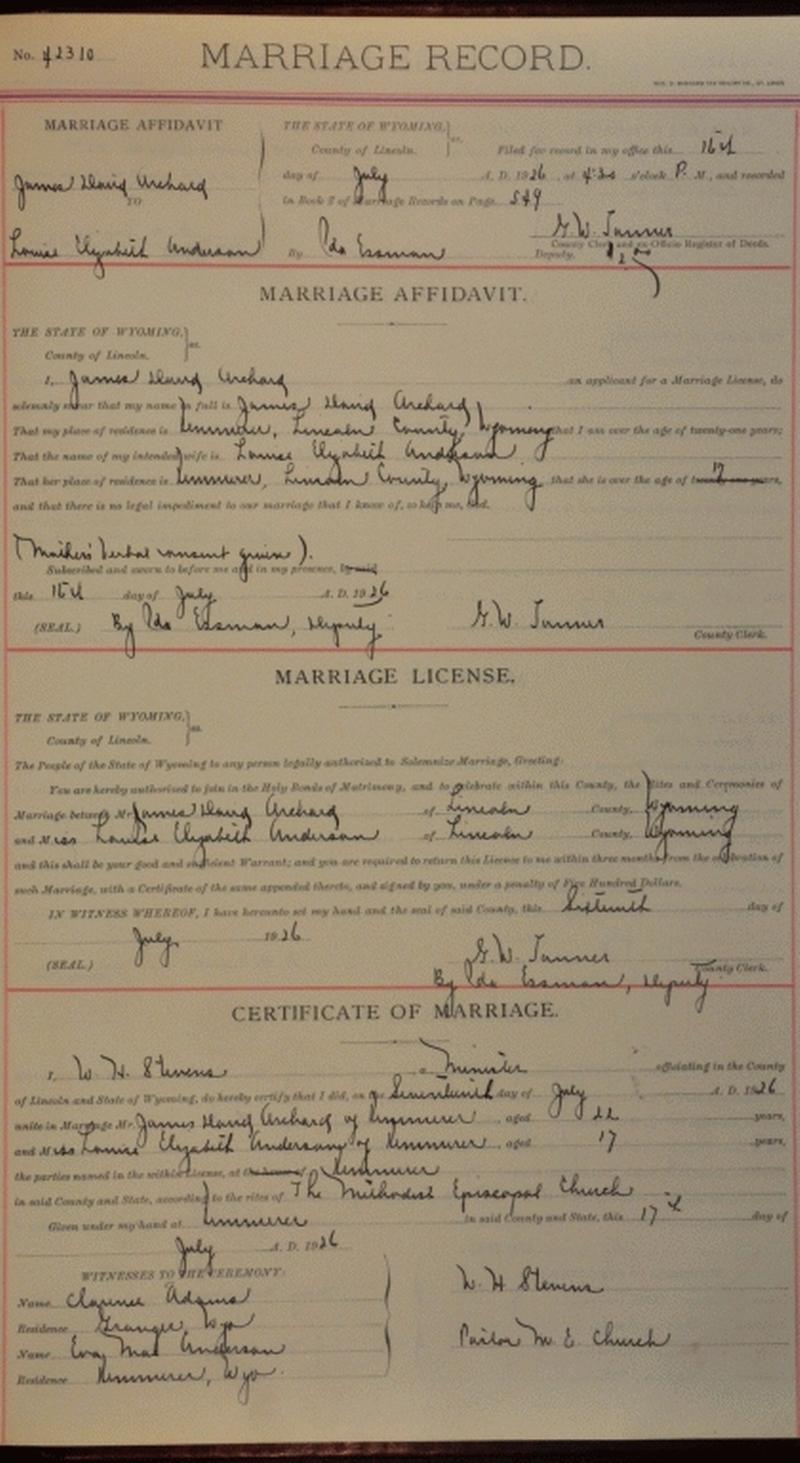 No. 42310 MARRIAGE RECORD.
MARRIAGE AFFIDAVIT
James David Archard
TO
Louise Elizabeth Anderson
THE STATE OF WYOMING, } ss.
County of Lincoln.
Filed for record in my office this 16th
day of July A. D. 1926, at 4:30 o'clock P. M., and recorded
in Book 2 of Marriage Records on Page 549
G. W. Tanner
County Clerk and ex-Officio Register of Deeds.
By Ida Essman Deputy.
MARRIAGE AFFIDAVIT.
THE STATE OF WYOMING, } ss.
County of Lincoln.
I, James David Archard an applicant for a Marriage License, do
solemnly swear that my name in full is James David Archard
That my place of residence is Kemmerer, Lincoln County, Wyoming that I am over the age of twenty-one years;
That the name of my intended wife is Louise Elizabeth Anderson
That her place of residence is Kemmerer, Lincoln County, Wyoming that she is over the age of 17 years,
and that there is no legal impediment to our marriage that I know of, so help me, God.
(Mother's Verbal consent given).
Subscribed and sworn to before me and in my presence, by said
this 16th day of July A. D. 1926
(SEAL.) By Ida Essman, Deputy G. W. Tanner
County Clerk.
MARRIAGE LICENSE.
THE STATE OF WYOMING, } ss.
County of Lincoln.
The People of the State of Wyoming to any person legally authorized to Solemnize Marriage, Greeting:
You are hereby authorized to join in the Holy Bonds of Matrimony, and to celebrate within this County, the Rites and Ceremonies of
Marriage between Mr. James David Archard of Lincoln County, Wyoming
and Miss Louise Elizabeth Anderson of Lincoln County, Wyoming
and this shall be your good and sufficient Warrant; and you are required to return this License to me within three months from the celebration of
such Marriage, with a Certificate of the same appended thereto, and signed by you, under a penalty of Five Hundred Dollars.
IN WITNESS WHEREOF, I have hereunto set my hand and the seal of said County, this Sixteenth day of
July 1926
G. W. Tanner
(SEAL.) County Clerk.
By Ida Essman, Deputy
CERTIFICATE OF MARRIAGE.
I, W. H. Stevens a Minister officiating in the County
of Lincoln and State of Wyoming, do hereby certify that I did, on the Seventeenth day of July A. D. 1926
unite in Marriage Mr. James David Archard of Kemmerer, aged 22 years,
and Miss Louise Elizabeth Anderson of Kemmerer, aged 17 years,
the parties named in the within License, at the house of Kemmerer
in said County and State, according to the rites of The Methodist Episcopal Church
Given under my hand at Kemmerer in said County and State, this 17th day of
July A. D. 1926
WITNESSES TO THE CEREMONY:
Name Clarence Adams
Residence Granger, Wyo
Name Eva Mae Anderson
Residence Kemmerer, Wyo.
W. H. Stevens
Pastor M. E. Church